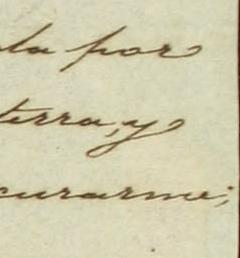 la por
terra, y
curarme;